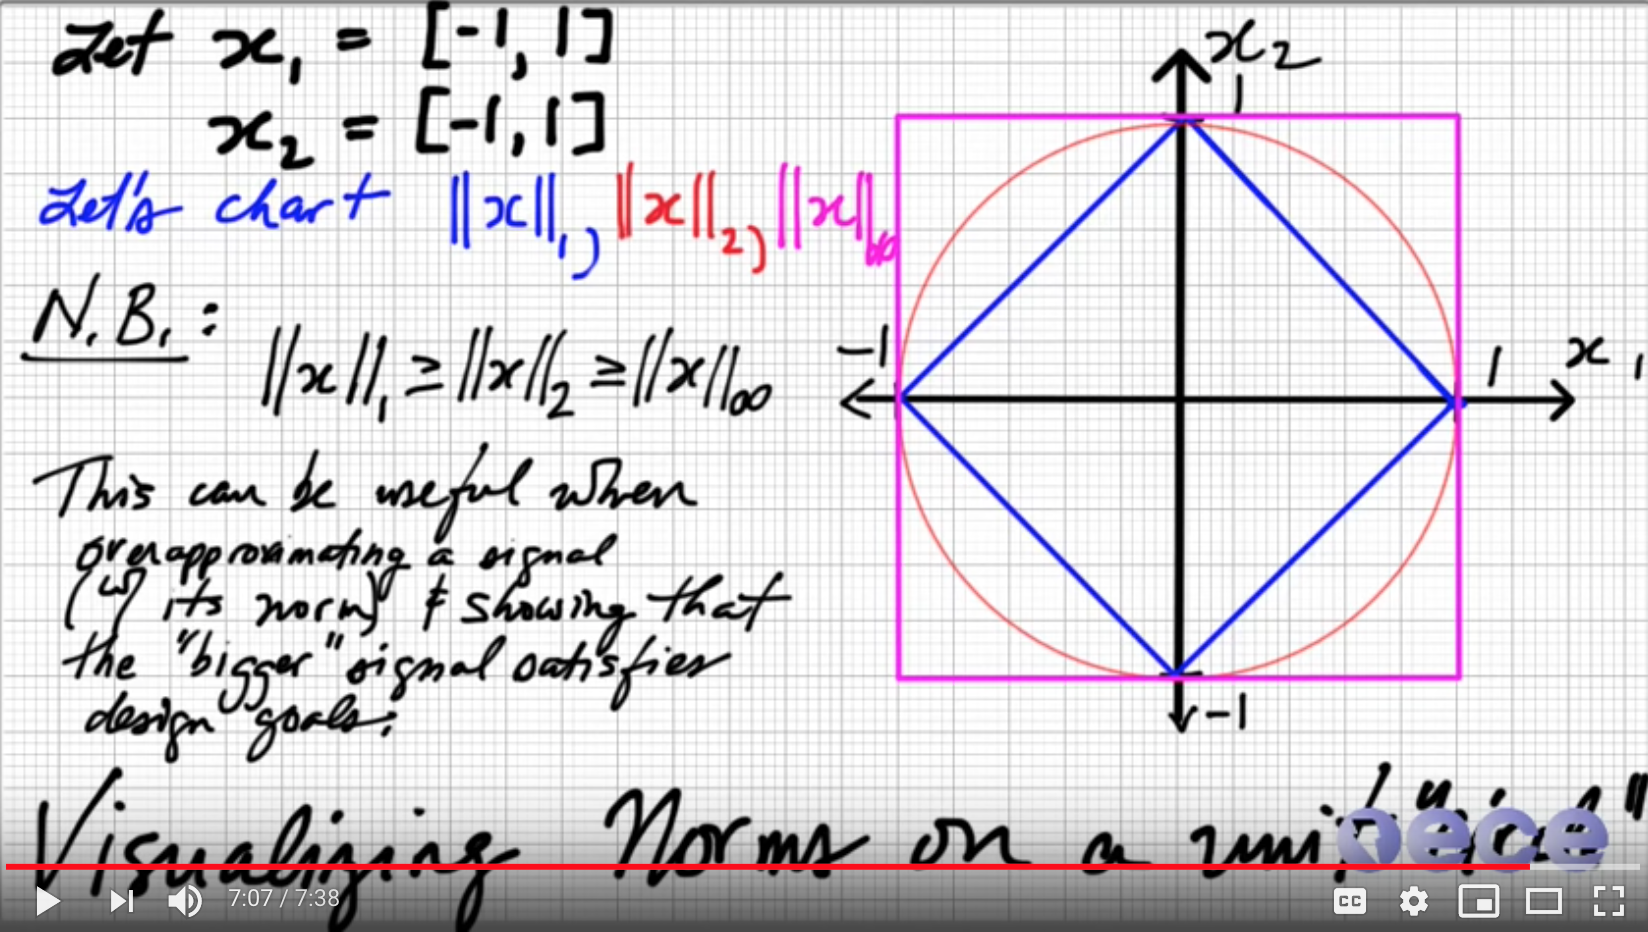 Let x₁ = [-1, 1]
x₂ = [-1, 1]
Let's chart ||x||₁, ||x||₂, ||x||∞
N.B.:
||x||₁ ≥ ||x||₂ ≥ ||x||∞
This can be useful when
overapproximating a signal
(w/ its norm) & showing that
the "bigger" signal satisfies
design goals.
x₂
1
-1
1
x₁
-1
Visualizing Norms on a unit "circle"
ece
7:07 / 7:38
CC